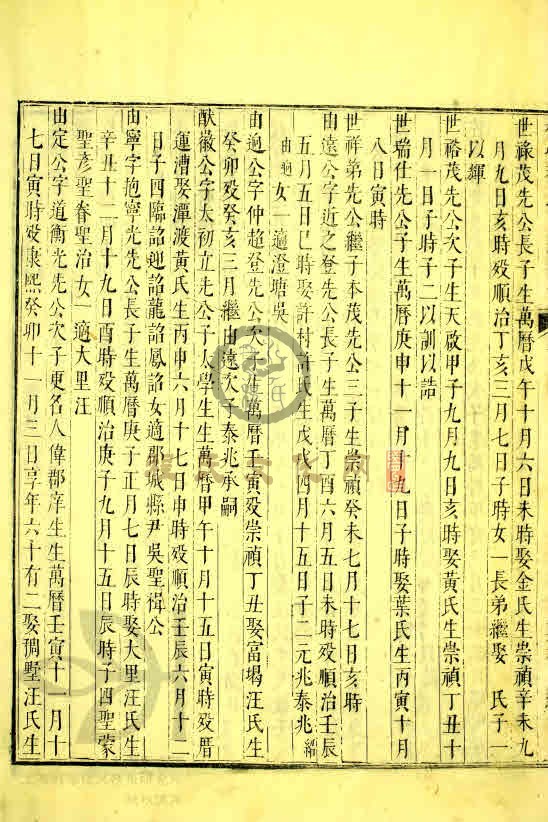 世祿茂先公長子生萬曆戊午十月六日未時娶金氏生崇禎辛未九
月九日亥時歿順治丁亥三月七日子時女一長弟繼娶　氏子一
以輝
世裕茂先公次子生天啟甲子九月九日亥時娶黃氏生崇禎丁丑十
月一日子時子二以訓以誥
世瑞仕先公子生萬曆庚申十一月十九日子時娶葉氏生丙寅十月
八日寅時
世祥弟先公繼子本茂先公三子生崇禎癸未七月十七日亥時
由遠公字近之登先公長子生萬曆丁酉六月五日未時歿順治壬辰
五月五日巳時娶許村許氏生戊戌四月十五日子二元兆泰兆紹
由過女一適澄塘吳
由過公字仲超登先公次子生萬曆壬寅歿崇禎丁丑娶富堨汪氏生
癸卯歿癸亥三月繼由遠次子泰兆承嗣
猷徽公字太初立先公子太學生生萬曆甲午十月十五日寅時歿厝
運漕娶潭渡黃氏生丙申六月十七日申時歿順治壬辰六月十二
日子四臨詔迎詔龍詔鳳詔女適郡城縣尹吳聖楫公
由寧字抱寧光先公長子生萬曆庚子正月七日辰時娶大里汪氏生
辛丑十二月十九日酉時歿順治庚子九月十五日辰時子四聖蒙
聖彥聖眷聖治女一適大里汪
由定公字道衡光先公次子更名人偉郡庠生生萬曆壬寅十一月十
七日寅時歿康熙癸卯十一月三日享年六十有二娶稠墅汪氏生